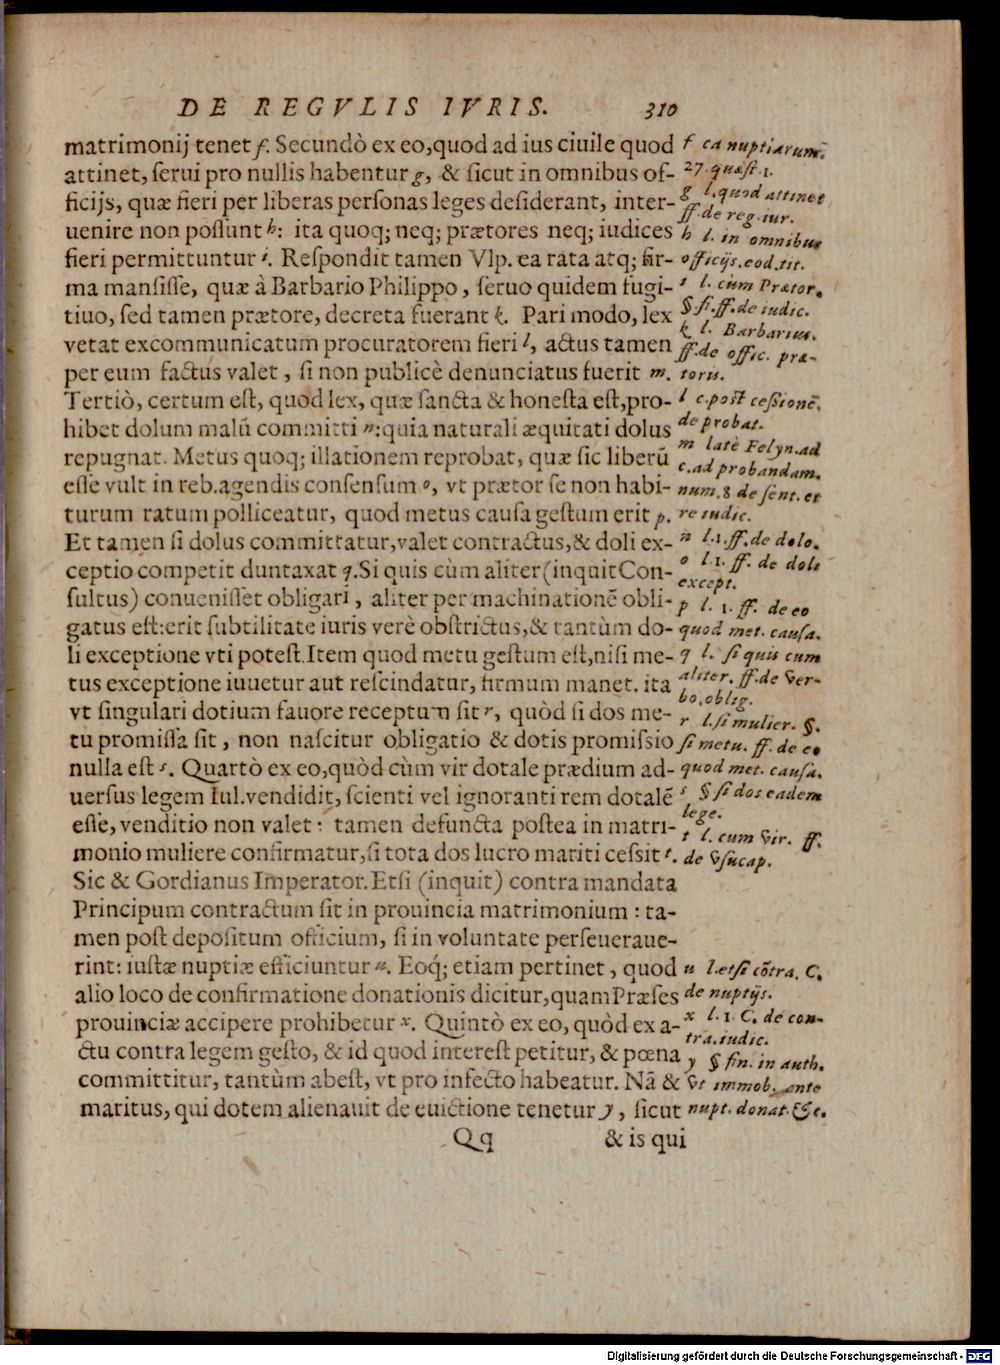 DE REGVLIS IVRIS. 310
matrimonij tenet f. Secundò ex eo,quod ad ius ciuile quod
attinet, ſerui pro nullis habentur g, & ſicut in omnibus of-
ficijs, quæ fieri per liberas perſonas leges deſiderant, inter-
uenire non poſſunt h: ita quoq; neq; prætores neq; iudices
fieri permittuntur i. Reſpondit tamen Vlp. ea rata atq; fir-
ma manſiſſe, quæ à Barbario Philippo, ſeruo quidem fugi-
tiuo, ſed tamen prætore, decreta fuerant k. Pari modo, lex
vetat excommunicatum procuratorem fieri l, actus tamen
per eum factus valet, ſi non publicè denunciatus fuerit m.
Tertiò, certum eſt, quod lex, quæ ſancta & honeſta eſt,pro-
hibet dolum malū committi n:quia naturali æquitati dolus
repugnat. Metus quoq; illationem reprobat, quæ ſic liberū
eſſe vult in reb.agendis conſenſum o, vt prætor ſe non habi-
turum ratum polliceatur, quod metus cauſa geſtum erit p.
Et tamen ſi dolus committatur,valet contractus,& doli ex-
ceptio competit duntaxat q.Si quis cùm aliter(inquit Con-
ſultus) conueniſſet obligari, aliter per machinationē obli-
gatus eſt:erit ſubtilitate iuris verè obſtrictus,& tantùm do-
li exceptione vti poteſt.Item quod metu geſtum eſt,niſi me-
tus exceptione iuuetur aut reſcindatur, firmum manet. ita
vt ſingulari dotium fauore receptum ſit r, quòd ſi dos me-
tu promiſſa ſit, non naſcitur obligatio & dotis promiſsio
nulla eſt s. Quartò ex eo,quòd cùm vir dotale prædium ad-
uerſus legem Iul.vendidit, ſcienti vel ignoranti rem dotalē
eſſe, venditio non valet: tamen defuncta poſtea in matri-
monio muliere confirmatur,ſi tota dos lucro mariti ceſsit t.
Sic & Gordianus Imperator.Etſi (inquit) contra mandata
Principum contractum ſit in prouincia matrimonium : ta-
men poſt depoſitum officium, ſi in voluntate perſeueraue-
rint: iuſtæ nuptiæ efficiuntur u. Eoq́; etiam pertinet, quod
alio loco de confirmatione donationis dicitur,quam Præſes
prouinciæ accipere prohibetur x. Quintò ex eo, quòd ex a-
ctu contra legem geſto, & id quod intereſt petitur, & pœna
committitur, tantùm abeſt, vt pro infecto habeatur. Nā &
maritus, qui dotem alienauit de euictione tenetur y, ſicut
Qq & is qui
f ca nuptiarum.
27. quæſt. 1.
g l. quod attinet
ff. de reg. iur.
h l. in omnibus
officijs. eod. tit.
i l. cùm Prætor.
§ ſi. ff. de iudic.
k l. Barbarius.
ff. de offic. præ-
toris.
l c. poſt ceſſionē.
de probat.
m latè Felyn. ad
c. ad probandam.
num. 8 de ſent. et
re iudic.
n l. 1. ff. de dolo.
o l. 1. ff. de doli
except.
p l. 1. ff. de eo
quod met. cauſa.
q l. ſi quis cum
aliter. ff. de ver-
bo. oblig.
r l. ſi mulier. §.
ſi metu. ff. de eo
quod met. cauſa.
s § ſi dos eadem
lege.
t l. cum vir. ff.
de vſucap.
u l. etſi cōtra. C.
de nuptijs.
x l. 1 C. de con-
tra. iudic.
y § fin. in auth.
vt immob. ante
nupt. donat. &c.
Digitalisierung gefördert durch die Deutsche Forschungsgemeinschaft - DFG